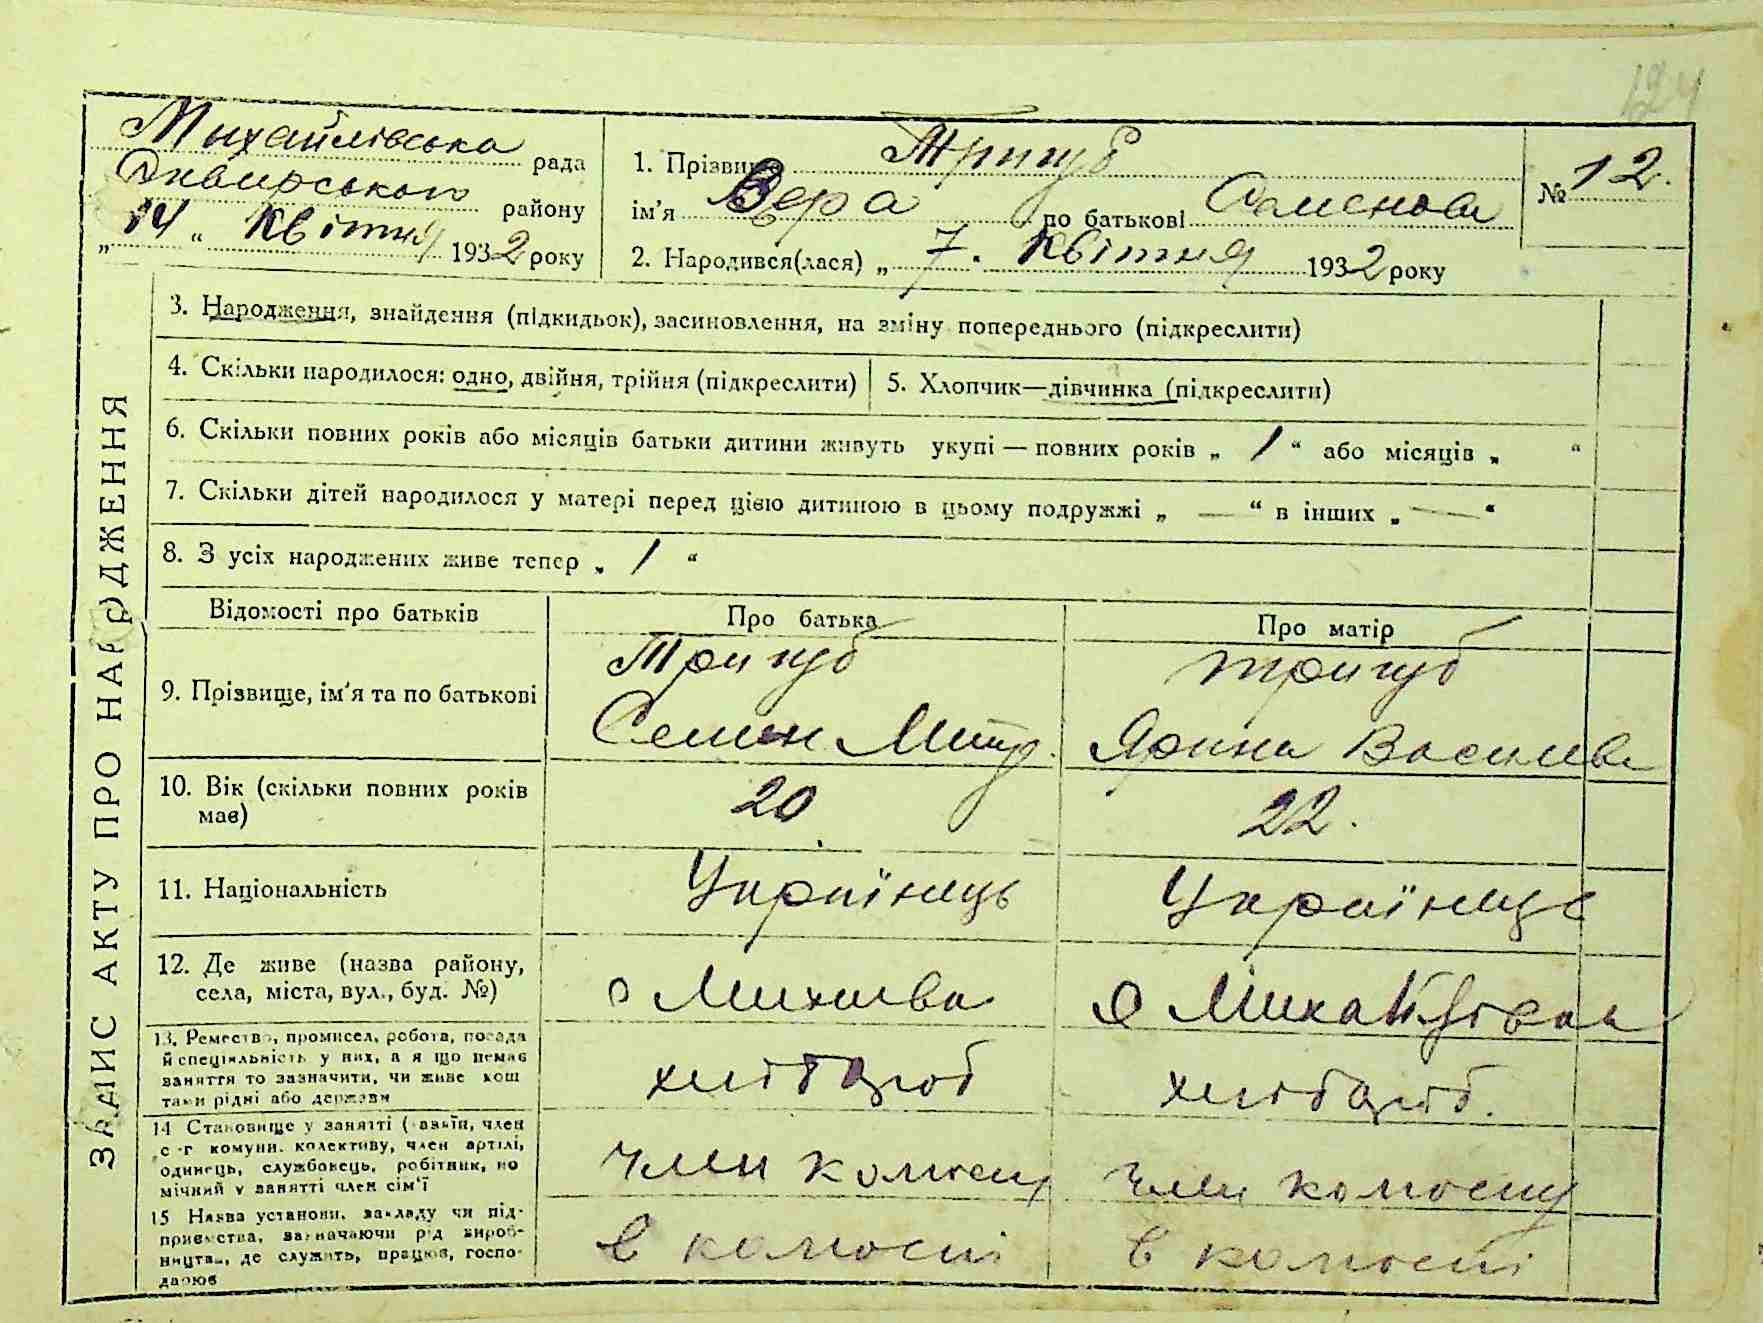 124
Михайлівська рада
району
„14“ Квітня 1932 року
1. Прізвище Тригуб
ім'я Вера по батькові Семенова
2. Народився(лася) „7. Квітня 1932 року
№ 12.
ЗАПИС АКТУ ПРО НАРОДЖЕННЯ
3. Народження, знайдення (підкидьок), засиновлення, на зміну попереднього (підкреслити)
4. Скільки народилося: одно, двійня, трійня (підкреслити)
5. Хлопчик—дівчинка (підкреслити)
6. Скільки повних років або місяців батьки дитини живуть укупі — повних років „ 1 “ або місяців „ “
7. Скільки дітей народилося у матері перед цією дитиною в цьому подружжі „ — “ в інших „ — “
8. З усіх народжених живе тепер „ 1 “
Відомості про батьків
Про батька
Про матір
9. Прізвище, ім'я та по батькові
Тригуб
Семен Митр.
Тригуб
Ярина Василева
10. Вік (скільки повних років
має)
20
22.
11. Національність
Українець
Українце
12. Де живе (назва району,
села, міста, вул., буд. №)
с
с Михайлівка
13. Ремество, промисел, робота, посада
й спеціяльність у них, а якщо немає
заняття то зазначити, чи живе кош
тами рідні або держави
хлібороб
хлібороб.
14 Становище у занятті (хазяїн, член
с-г комуни, колективу, член артілі,
одинець, службовець, робітник, по
мічний у занятті член сім'ї
член колгоспу
член колгоспу
15 Назва установи, закладу чи під-
приємства, зазначаючи рід вироб-
ництва, де служить, працює, госпо-
дарює
в колгоспі
в колгоспі